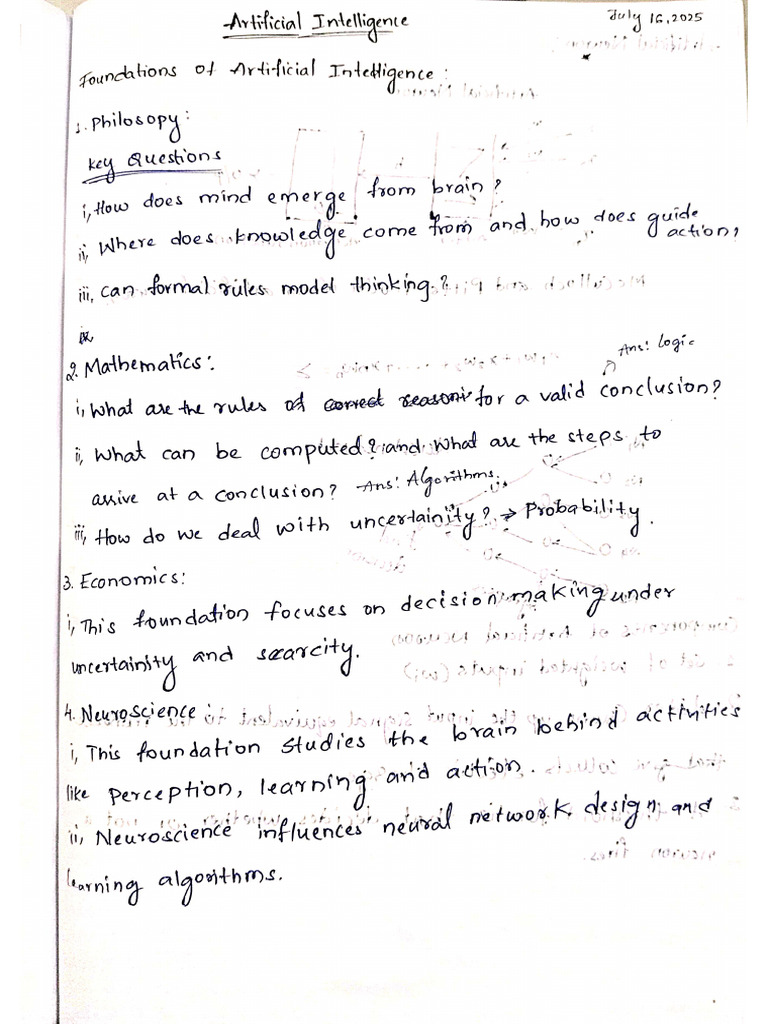 Artificial Intelligence
July 16, 2025
Foundations of Artificial Intelligence:
1. Philosopy:
Key Questions
i, How does mind emerge from brain?
ii, Where does knowledge come from and how does guide action?
iii, can formal rules model thinking.?
2. Mathematics:
Ans: Logic
i, What are the rules of correct reasoni for a valid conclusion?
ii, What can be computed? and What are the steps to
arrive at a conclusion? Ans: Algorithms.
iii, How do we deal with uncertainity? → Probability.
3. Economics:
i, This foundation focuses on decision making under
uncertainity and scarcity.
4. Neuroscience:
i, This foundation studies the brain behind activities
like perception, learning and action.
ii, Neuroscience influences neural network design and
learning algorithms.